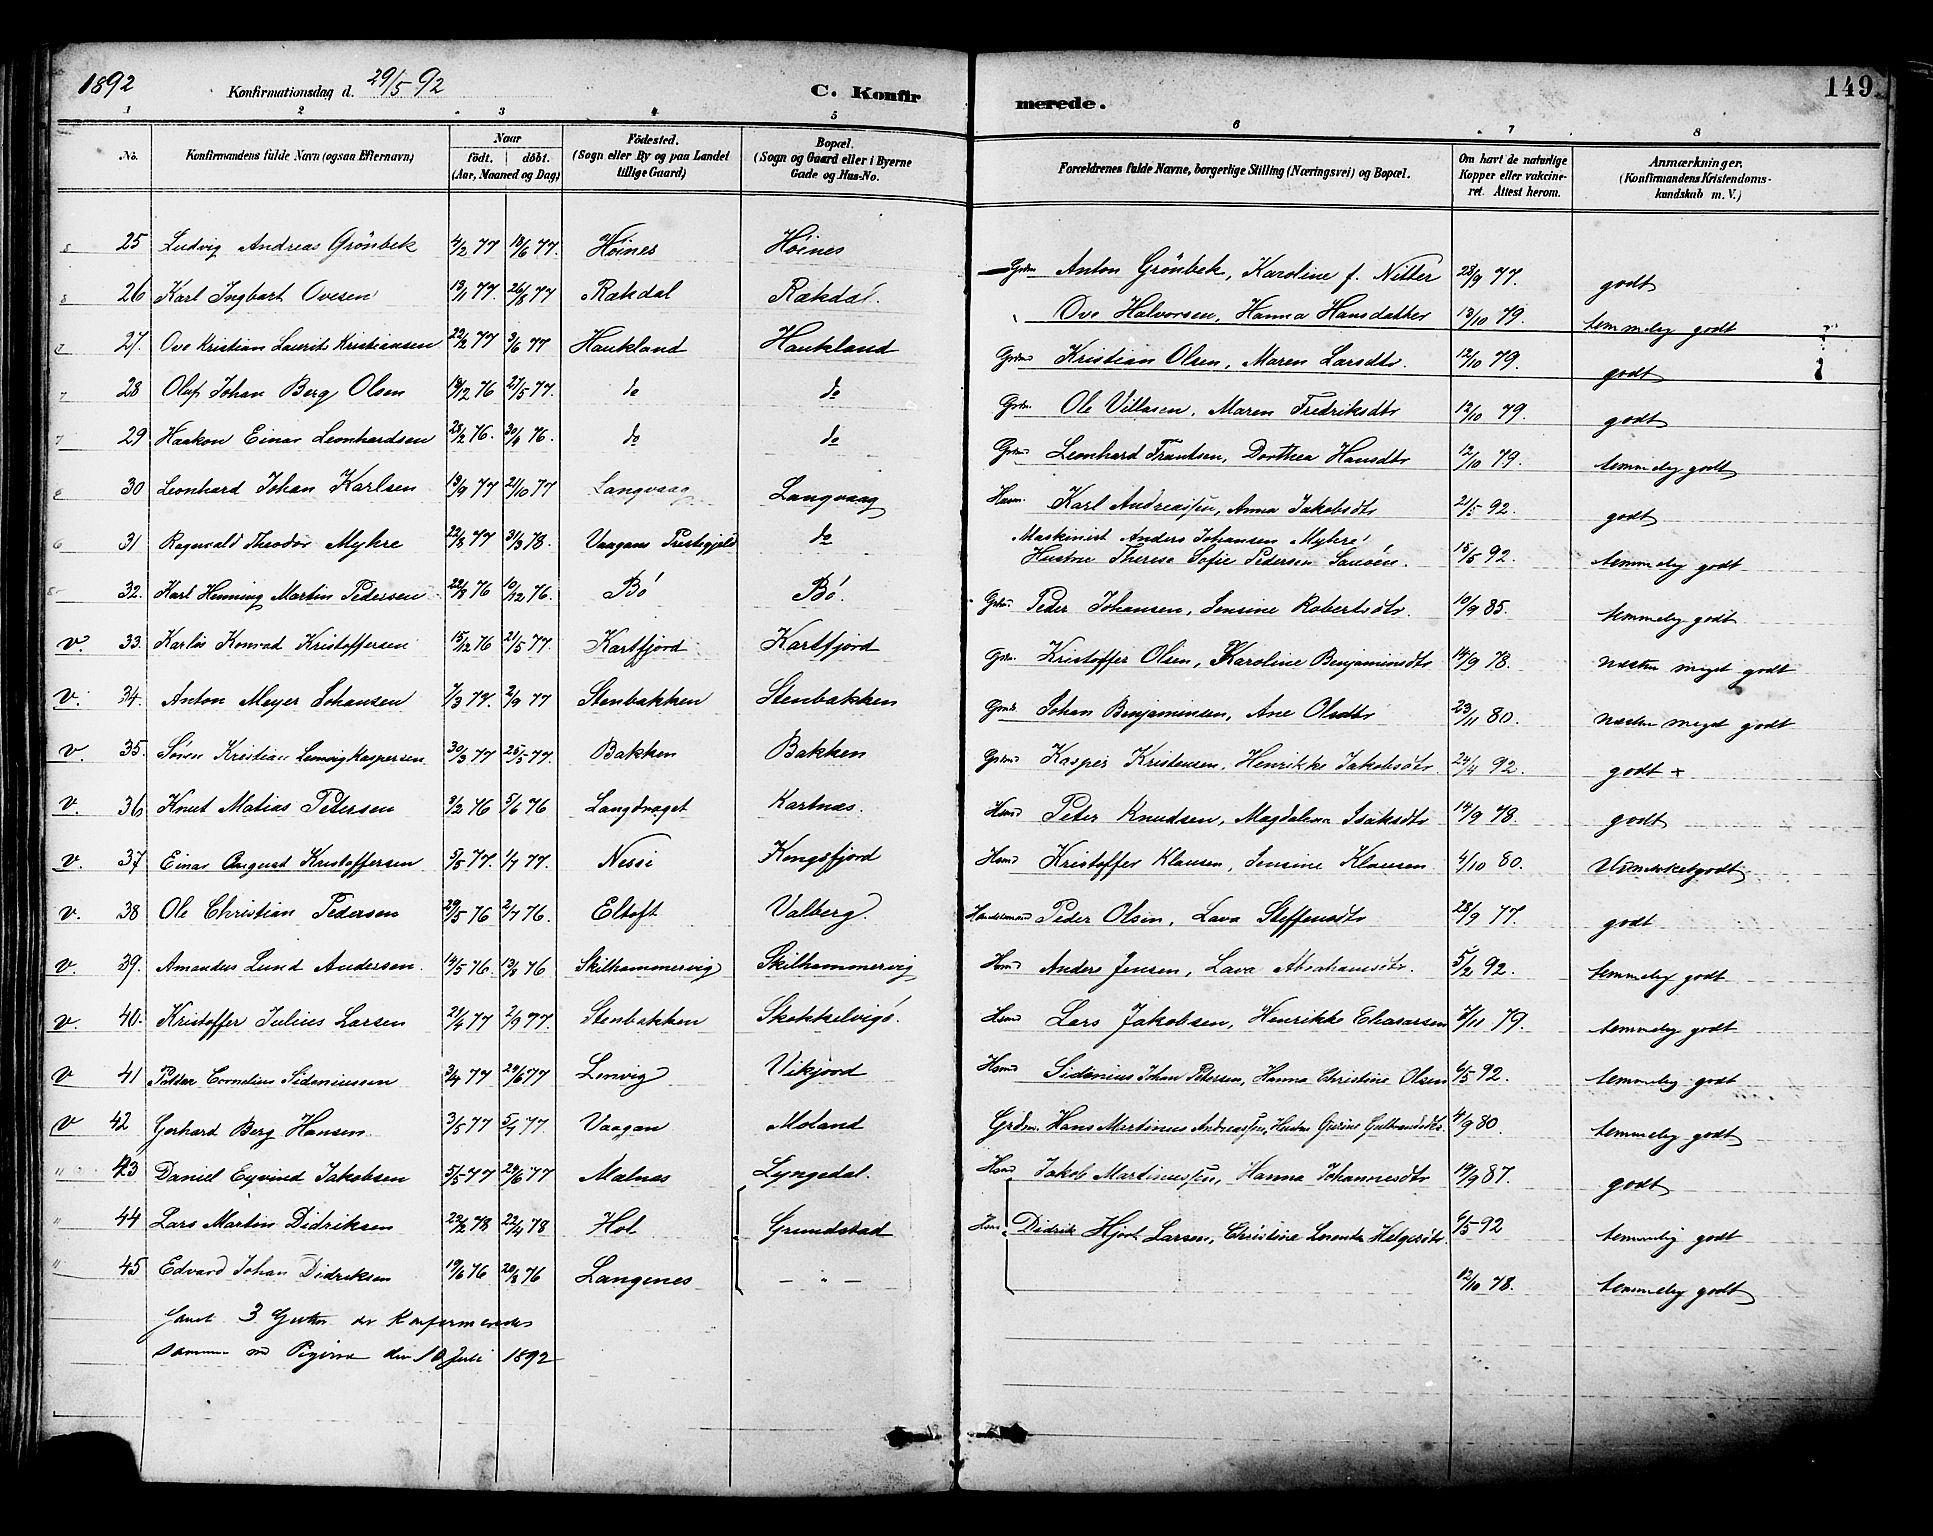 1892 Konfirmationsdag d. 29/5 92 C. Konfirmerede. 149
1 2 3 4 5 6 7 8
No. Konfirmandens fulde Navn (ogsaa Efternavn) Naar født. døbt. (Aar, Maaned og Dag) Fødested. (Sogn eller By og paa Landet tillige Gaard) Bopæl. (Sogn og Gaard eller i Byerne Gade og Hus-No. Forældrenes fulde Navne, borgerlige Stilling (Næringsvei) og Bopæl. Om havt de naturlige Kopper eller vaccineret. Attest herom. Anmærkninger. (Konfirmandens Kristendomskundskab m. V.)
25 Ludvig Andreas Grönbek 4/2 77 13/6 77. Höines Höines Grdm Anton Grönbek, Karoline f. Nitter 28/9 77. godt
26 Karl Ingbart Ovesen 13/1 77. 26/8 77 Rækdal Rækdal. Ove Halvorsen, Hanna Hansdatter 13/10 79. temmelig godt
27. Ove Kristian Laurits Kristiansen 22/2 77 3/6 77 Haukland Haukland Grdm Kristian Olsen, Maren Larsdtr. 12/10 79. godt
28 Oluf Johan Berg Olsen 18/12 76 27/5 77. do do Grdm. Ole Villasen, Maren Fredriksdtr 12/10 79. godt
29 Haakon Einar Leonhardsen 23/2 76. 30/9 76. do do Grdm Leonhard Frantsen, Dorthea Hansdtr 12/10 79. temmelig godt
30 Leonhard Johan Karlsen 13/9 77 21/10 77 Langvaag Langvaag Hsm. Karl Andreassen, Anna Jakobsdtr 21/5 92. godt
31 Ragnvald Theodor Myhre 22/8 77 31/3 78. Vaagans Prestegjeld do Maskinist Anders Johansen Myhre,
Hustru Therese Sofie Pedersen 15/5 92. temmelig godt
32. Karl Henning Martin Pedersen 22/8 76 10/12 76. Bö Bö. Grdm Peder Johansen, Jensine Robertsdtr. 10/9 85. temmelig godt
v. 33. Karlös Konrad Kristoffersen 15/12 76 21/5 77. Kartfjord Kartfjord Grdm. Kristoffer Olsen, Karoline Benjaminsdtr 14/9 78. næsten meget godt
v. 34. Anton Meyer Johansen 7/3 77. 2/9 77 Stenbakken Stenbakken Grdm Johan Benjaminsen, Ane Olsdtr 23/11 80. næsten meget godt
v. 35. Sören Kristian Lemvig Kaspersen 30/3 77 25/5 77. Bakken Bakken Grdm Kasper Kristensen, Henrikke Jakobsdtr. 24/4 92. godt +
v. 36 Knut Matias Petersen 9/2 76 5/6 76 Langdraget Kartnæs. Hsmd Peter Knudsen, Magdalena Isaksdtr 14/9 78. godt
v. 37 Einar August Kristoffersen 5/5 77. 1/7 77. Nessi Kongsfjord Hsmd Kristoffer Klausen, Jensine Klausen 4/10 80. Udmerket godt
v. 38 Ole Christian Pedersen 29/5 76 2/7 76. Eltoft Valberg. Handelsmand Peder Olsen, Lava Steffensdtr 28/9 77. godt
v. 39. Amandus Lund Andersen. 14/5 76. 13/8 76 Skilhammervig Skilhammervig Hsmd Anders Jensen, Lava Abrahamsdtr. 5/2 92. temmelig godt
v. 40. Kristoffer Julius Larsen 21/4 77 2/9 77. Stenbakken Skokkelvigö. Hsmd Lars Jakobsen, Henrikke Eleasarsen 3/11 79. temmelig godt
v 41 Petter Cornelius Sideniussen 3/4 77 24/6 77 Lenvig Vikjord Hsmd Sidenius Johan Petersen, Hanna Christine Olsen 6/5 92. temmelig godt
v 42 Gerhard Berg Hansen 3/5 77 5/7 77. Vaagan Moland Grdm. Hans Martinus Andreassen, Hustru Gurine Gulbrandsdtr. 4/9 80. temmelig godt
" 43 Daniel Eyvind Jakobsen 5/5 77 24/6 77 Malnæs Lyngedal. Hsmd Jakob Martinussen, Hanna Johannesdtr 19/9 87. godt
" 44 Lars Martin Didriksen 20/2 78 22/4 78 Hol Grundstad Hsm. Didrik Hjort Larsen, Christine Lorentz Helgesdtr. 6/5 92 temmelig godt
" 45 Edvard Johan Didriksen 19/6 76 20/8 76 Langenes — " — 12/10 78. temmelig godt
Samt 3 Gutter der Konfirmeredes
sammen md Pigerne den 10 Juli 1892